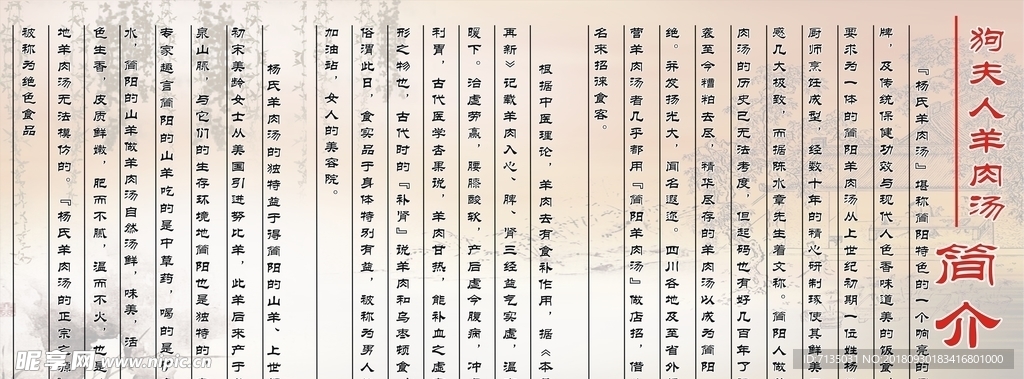 狗夫人羊肉汤
简介
『杨氏羊肉汤』堪称简阳特色的一个响亮的
牌，及传统保健功效与现代人色香味道美的饭食
要求为一体的简阳羊肉汤从上世纪初期一位姓杨
厨师烹饪成型，经数十年的精心研制琢使其鲜美
感几大极致，而据陈水章先生着文称。简阳人做
肉汤的历史已无法考度，但起码也有好几百年了
袭至今糟粕去尽，精华尽存的羊肉汤以成为简阳
绝。并发扬光大，闻名遐迩。四川各地及至省外
营羊肉汤者几乎都用『简阳羊肉汤』做店招，借
名来招徕食客。
根据中医理论，羊肉去有食补作用，据《本
再新》记载羊肉入心、脾、肾三经益气实虚，温
暖下。治虚劳羸，腰膝酸软，产后虚令腹病，冲
利胃，古代医学杏果说，羊肉甘热，能补血之虚
形之物也，古代时的『补肾』说羊肉和乌枣顿食
俗谓此日，食实品于身体特别有益，被称为男人
加油站，女人的美容院。
杨氏羊肉汤的独特益于得简阳的山羊、上世
初宋美龄女士从美国引进努比羊，此羊后来产于
泉山脉，与它们的生存环境地简阳也是独特的
专家趣言简阳的山羊吃的是中草药，喝的是
水，简阳的山羊做羊肉汤自然汤鲜，味美，活
色生香，皮质鲜嫩，肥而不腻，温而不火，也是
地羊肉汤无法模仿的。『杨氏羊肉汤的正宗之源
被称为绝色食品
昵享网 www.nipic.cn
ID:7135031 NO:20180930183416801000